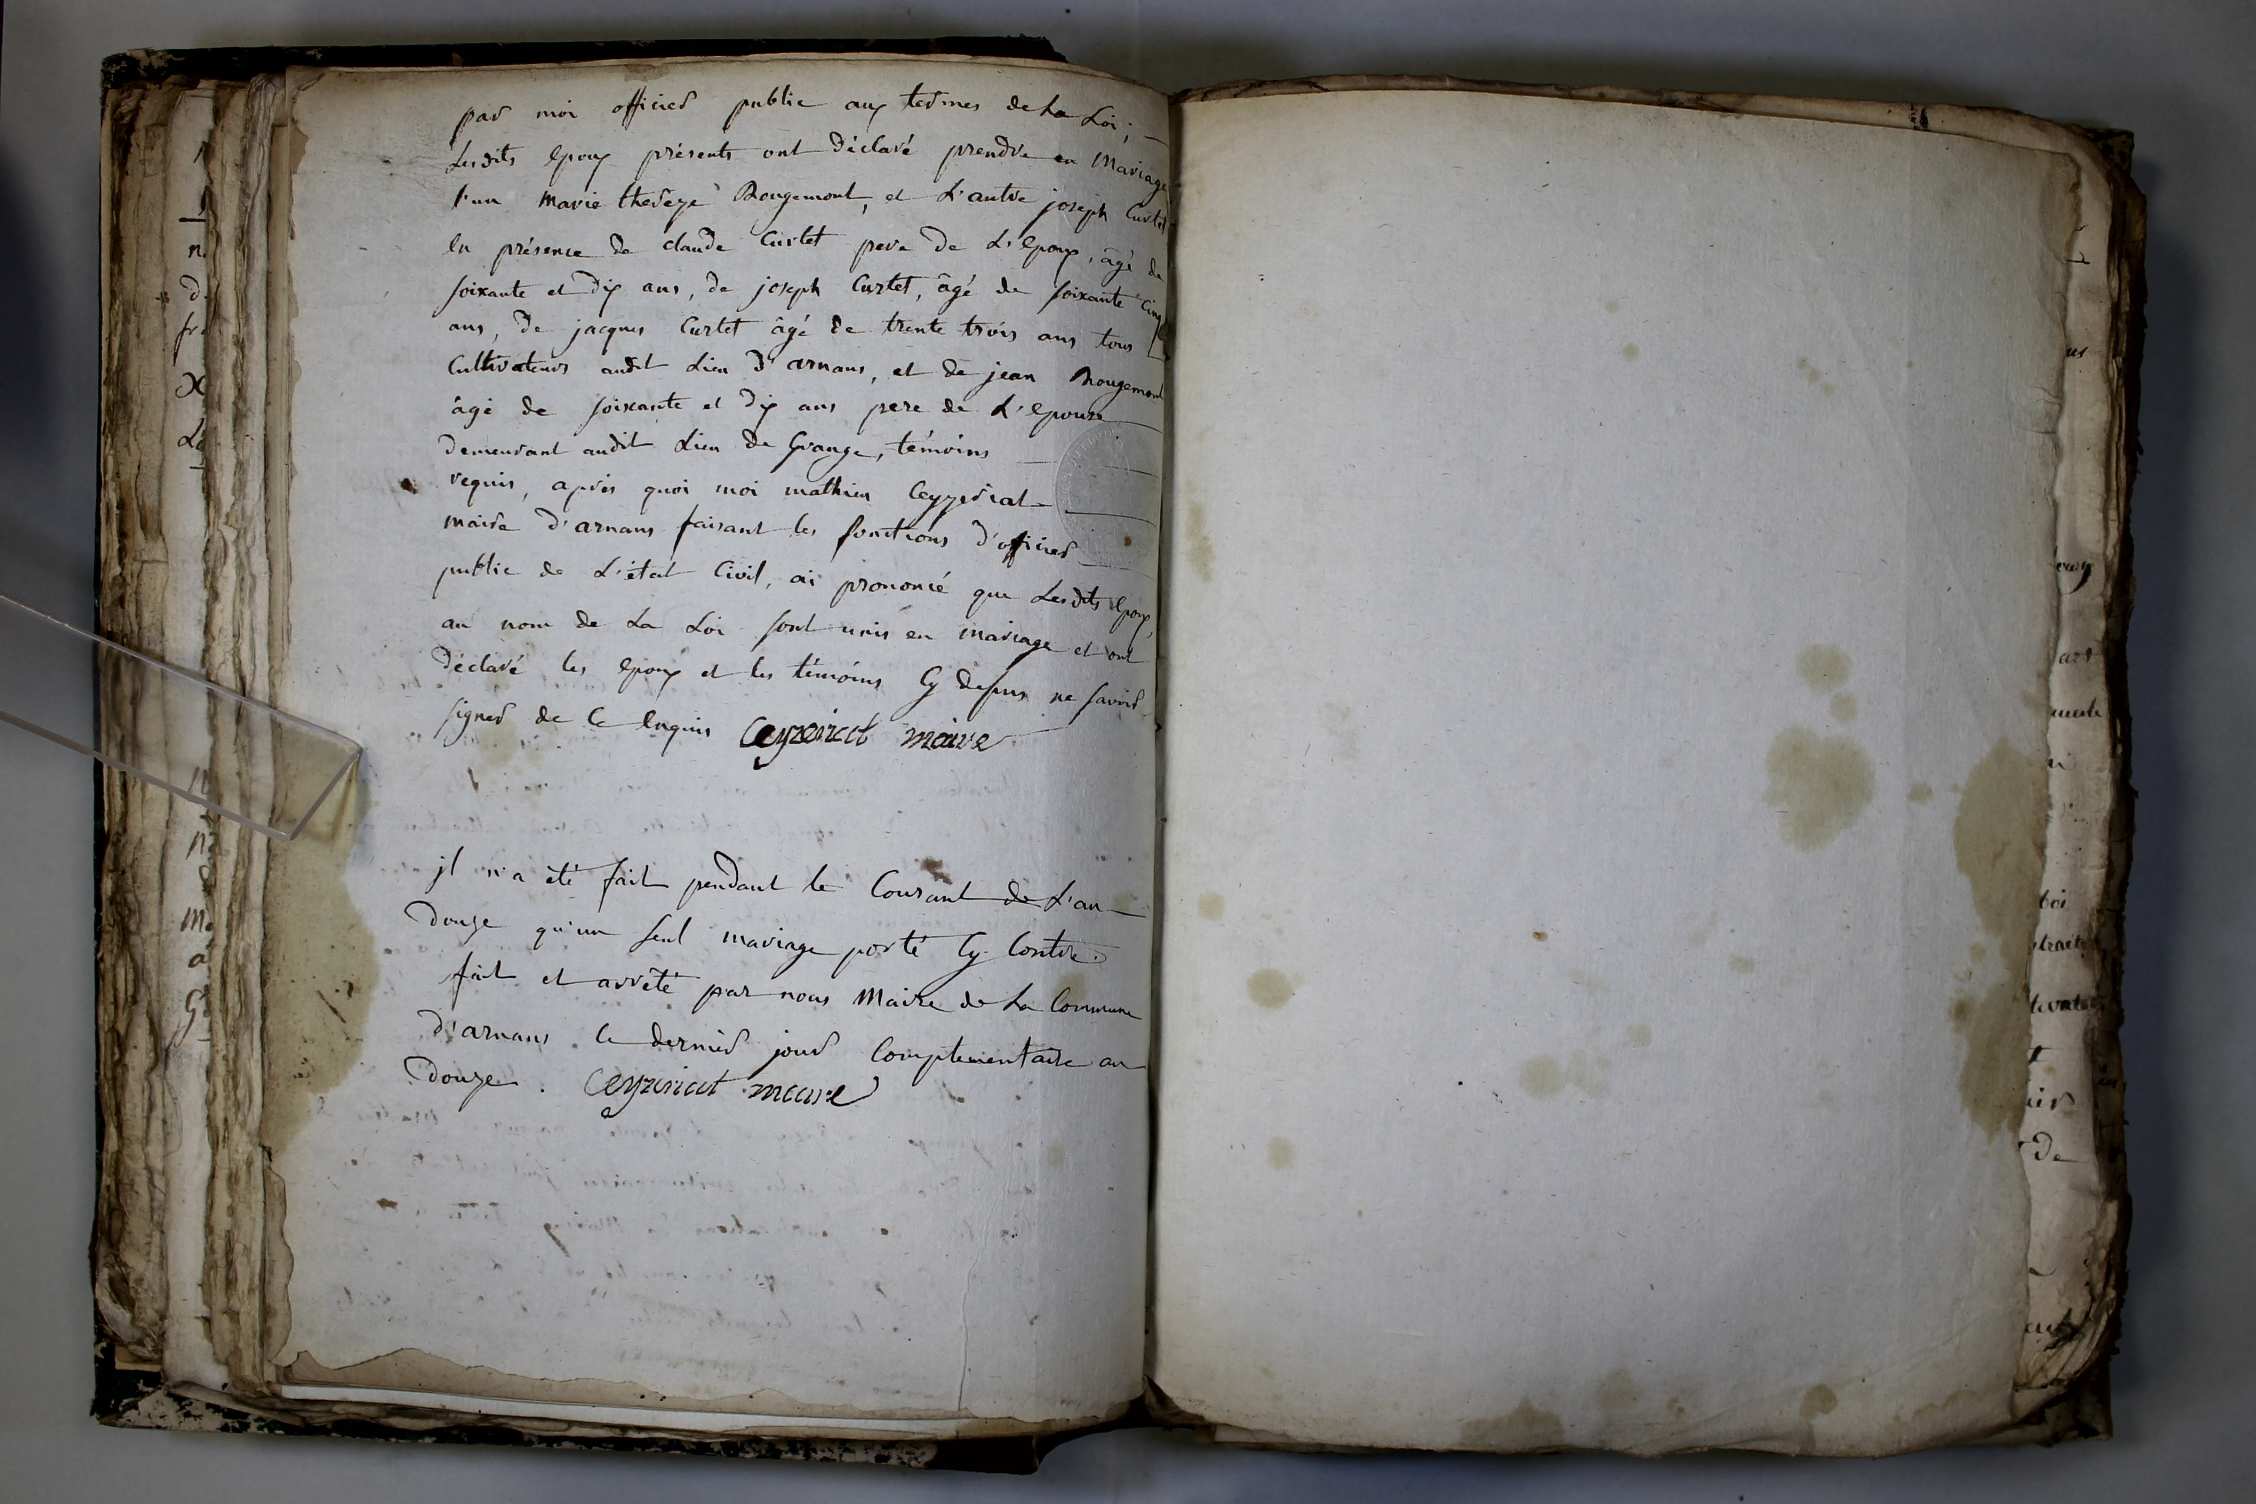 par moi officier public aux termes de La Loi;
Lesdits epoux présents ont déclaré prendre en Mariage
l'un Marie thereze Rougemont, et L'autre joseph Curtet
en présence de claude Curtet pere de L'epoux, âgé de
soixante et dix ans, de joseph Curtet, âgé de soixante cinq
ans, de jacques Curtet âgé de trente trois ans tous
Cultivateurs audit Lieu d'arnans, et de jean Rougemont
âgé de soixante et dix ans pere de L'epouse
demeurant audit Lieu de Grange, témoins
requis, après quoi moi mathieu Ceyzeriat
maire d'arnans faisant les fonctions d'officier
public de L'état Civil, ai prononcé que Lesdits epoux,
au nom de La Loi sont unis en mariage et ont
déclaré les epoux et les témoins Cy dessus ne savoir
signer de ce enquis Ceyzeriat maire
jl n'a été fait pendant le Courant de L'an
douze qu'un seul mariage porté Cy Contre.
fait et arrêté par nous Maire de La Commune
d'arnans le dernier jour Complementaire an
douze. Ceyzeriat maire
n
d
fr
X
La
Ma
a
us
eux
ars
n
toi
de